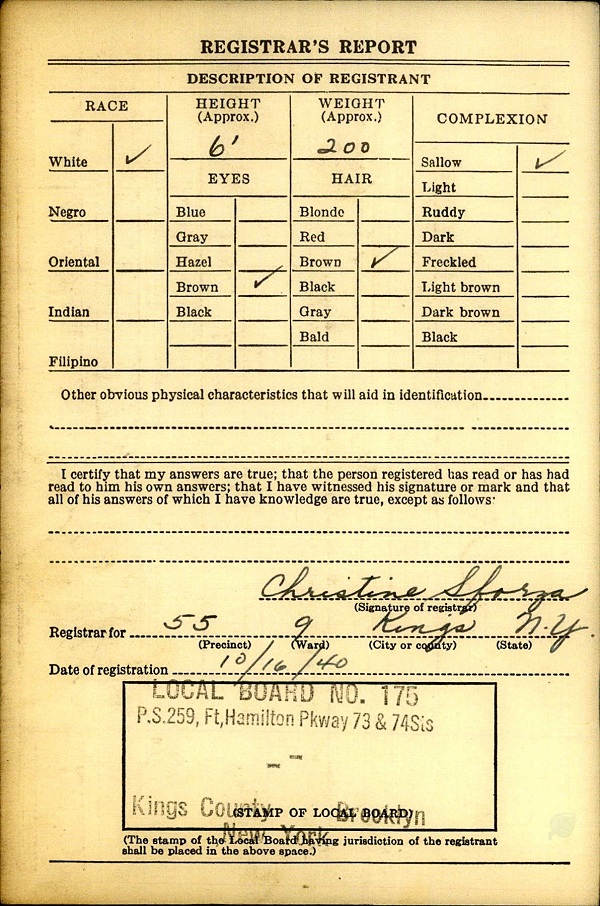 REGISTRAR'S REPORT
DESCRIPTION OF REGISTRANT
RACE
HEIGHT (Approx.)
WEIGHT (Approx.)
COMPLEXION
6'
200
White ✓
Sallow ✓
EYES
HAIR
Light
Negro
Blue
Blonde
Ruddy
Gray
Red
Dark
Oriental
Hazel
Brown ✓
Freckled
Brown ✓
Black
Light brown
Indian
Black
Gray
Dark brown
Bald
Black
Filipino
Other obvious physical characteristics that will aid in identification
I certify that my answers are true; that the person registered has read or has had
read to him his own answers; that I have witnessed his signature or mark and that
all of his answers of which I have knowledge are true, except as follows:
Christine Sforza
(Signature of registrar)
Registrar for 55 9 Kings N.Y.
(Precinct) (Ward) (City or county) (State)
Date of registration 10/16/40
LOCAL BOARD NO. 175
P.S.259, Ft,Hamilton Pkway 73 & 74Sts
Kings County Brooklyn
(STAMP OF LOCAL BOARD)
New York
(The stamp of the Local Board having jurisdiction of the registrant
shall be placed in the above space.)